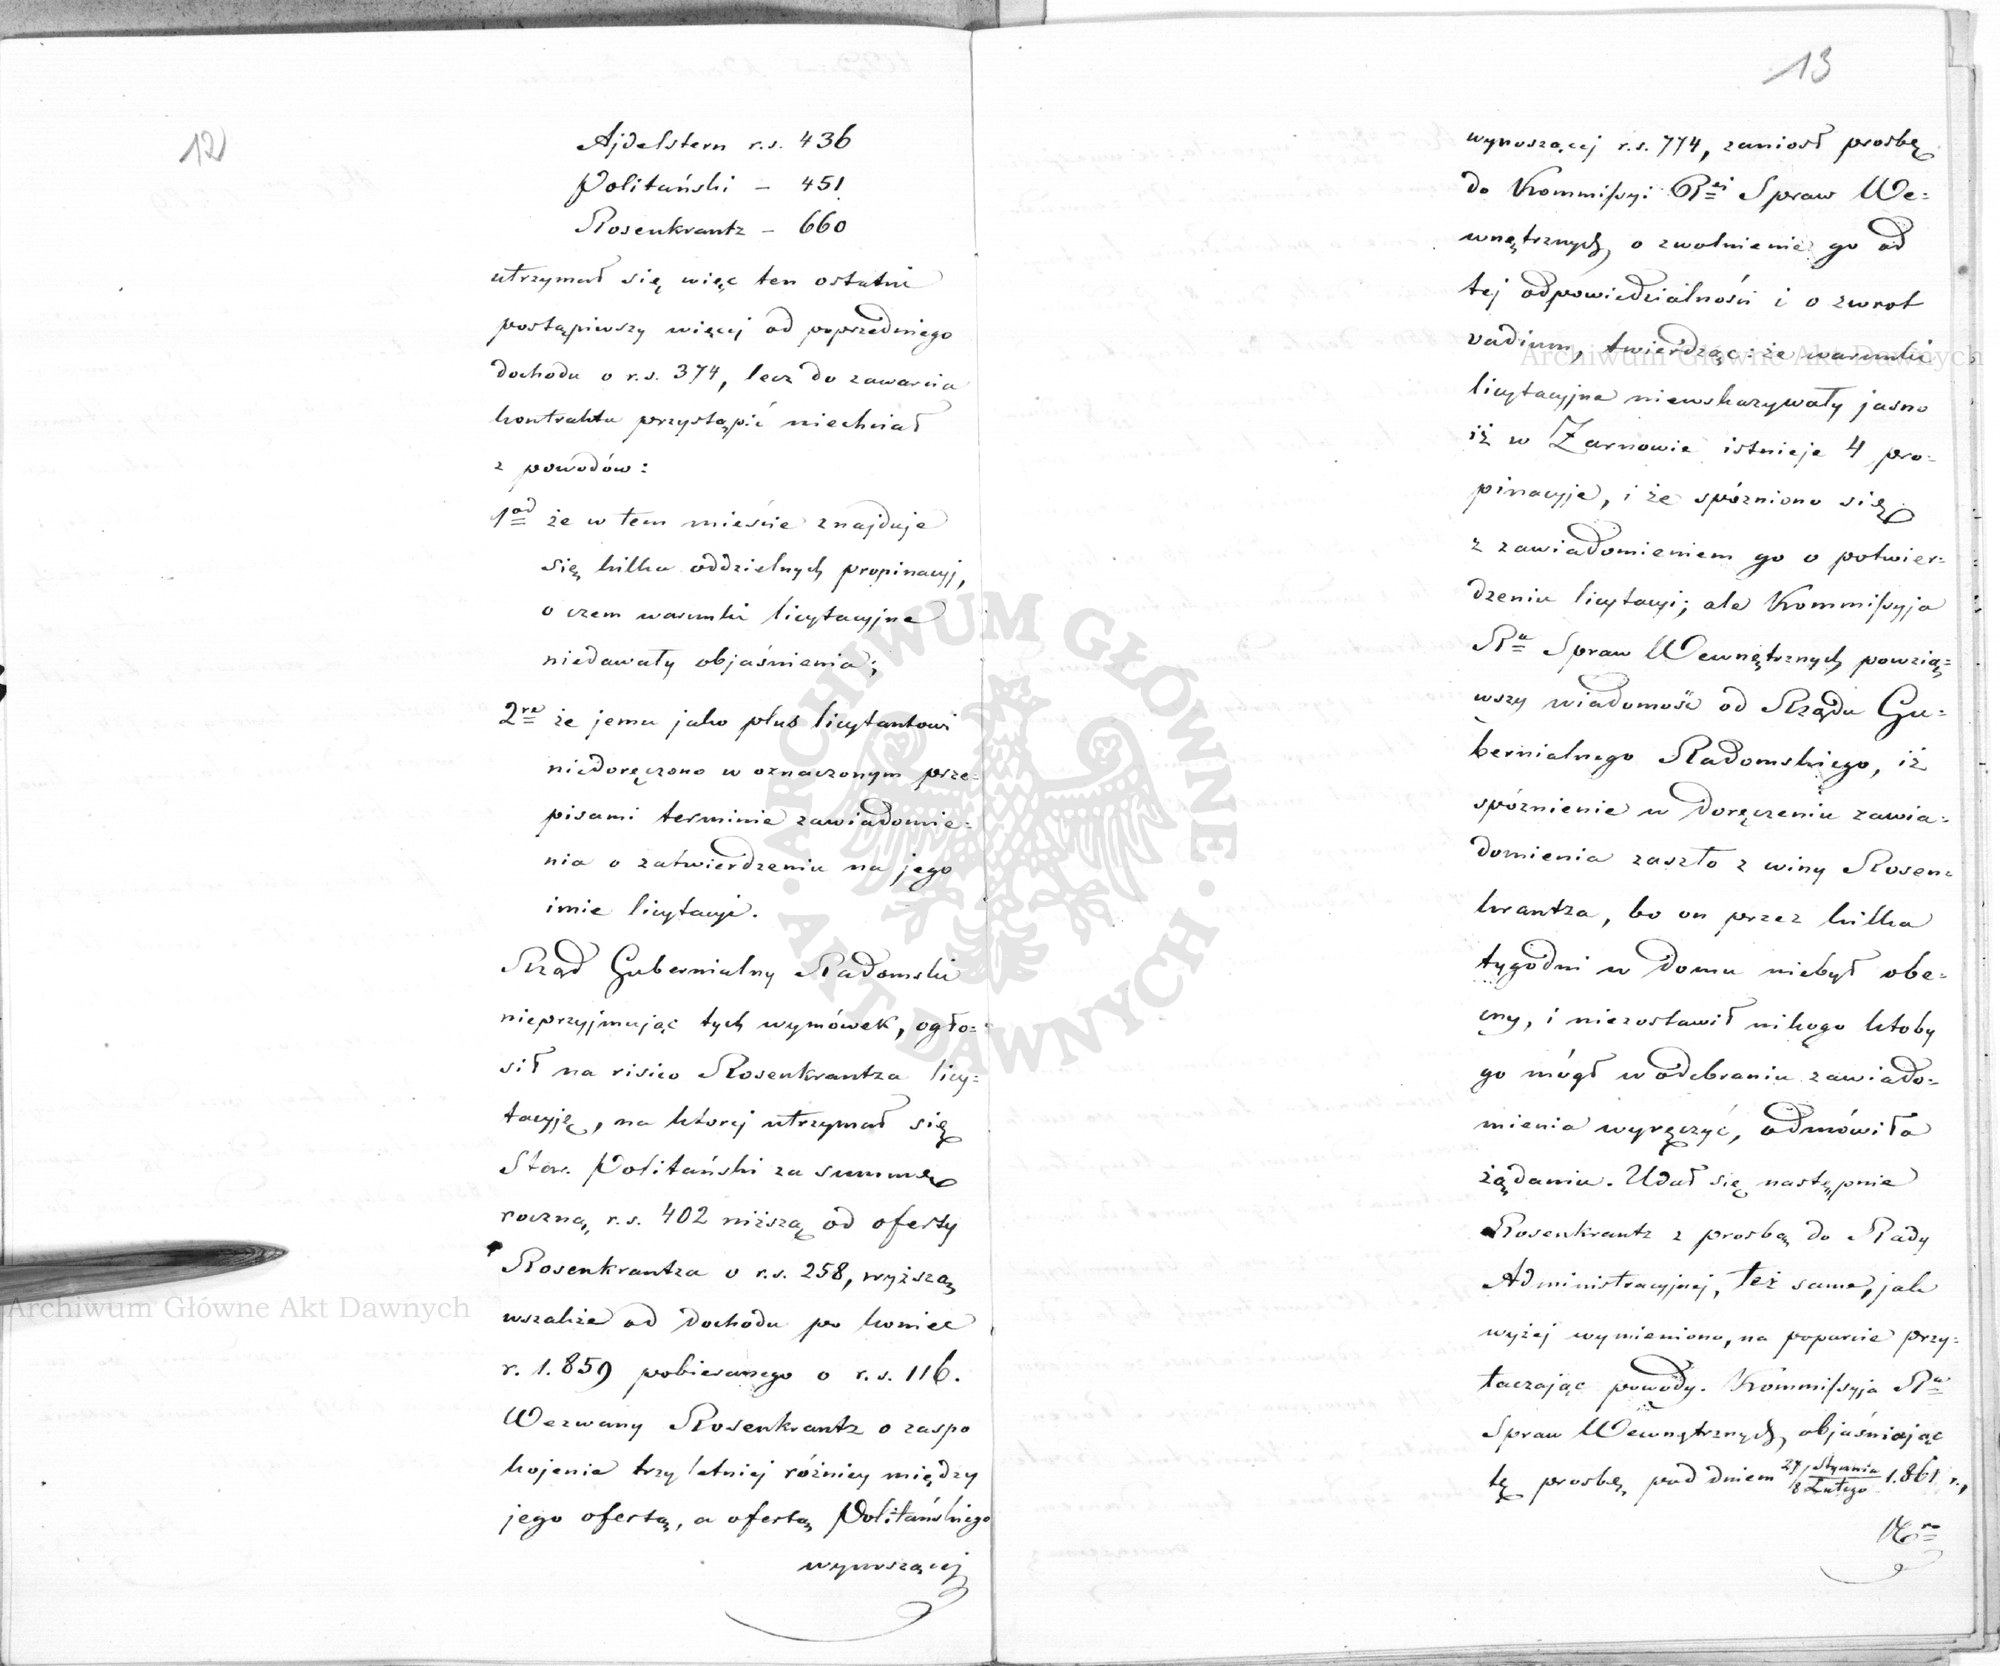 12
Ajdelstern r.s. 436
Politański – 451
Rosenkrantz – 660
utrzymał się więc ten ostatni
postąpiwszy więcej od poprzedniego
dochodu o r.s. 374, lecz do zawarcia
kontraktu przystąpić niechciał
z powodów:
1od że w tem mieście znajduje
się kilka oddzielnych propinacyj,
o czem warunki licytacyjne
niedawały objaśnienia;
2re że jemu jako plus licytantowi
niedoręczono w oznaczonym prze=
pisami terminie zawiadomie=
nia o zatwierdzeniu na jego
imie licytacyi.
Rząd Gubernialny Radomski
nieprzyjmując tych wymówek, ogło=
sił na risico Rosenkrantza licy=
tacyję, na ktorej utrzymał się
Star. Politański za summę
roczną, r.s. 402 niższą od oferty
Rosenkrantza o r.s. 258, wyższą
wszakże od dochodu po koniec
r. 1.859 pobieranego o r.s. 116.
Wezwany Rosenkrantz o zaspo
kojenie trzy letniej różnicy między
jego ofertą, a ofertą Politańskiego
wynoszącej
13
wynoszącej r.s. 774, zaniosł prosbę
do Kommissyi Rei Spraw We=
wnętrznych, o zwolnienie go od
tej odpowiedzialności i o zwrot
vadium, twierdząc: że warunki
licytacyjne niewskazywały jasno
iż w Żarnowie istnieje 4 pro=
pinacyje, i że spózniono się
z zawiadomieniem go o potwier=
dzeniu licytacyi; ale Kommissyja
Ra Spraw Wewnętrznych powzią=
wszy wiadomość od Rządu Gu=
bernialnego Radomskiego, iż
spóznienie w doręczeniu zawia=
domienia zaszło z winy Rosen=
krantza, bo on przez kilka
tygodni w domu niebył obe=
cny, i niezostawił nikogo ktoby
go mógł w odebraniu zawiado=
mienia wyręczyć, odmówiła
żądaniu. Udał się następnie
Rosenkrantz z prosbą do Rady
Administracyjnej, też same, jak
wyżej wymieniono, na poparcie przy=
taczając powody. Kommissyja Ra
Spraw Wewnętrznych, objaśniając
tę prosbę, pod dniem 27/8 Stycznia/Lutego 1.861 r.,
Archiwum Główne Akt Dawnych
Archiwum Główne Akt Dawnych
ARCHIWUM GŁÓWNE · AKT DAWNYCH ·